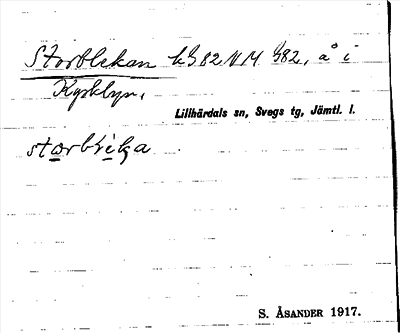 Storblekan k G 82 N M G82, å i
Kyrkbyn,
Lillhärdals sn, Svegs tg, Jämtl. l.
S. ÅSANDER 1917.